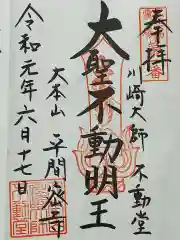 奉拝
川崎大師 不動堂
大聖不動明王
大本山 平間寺
令和元年六月十七日